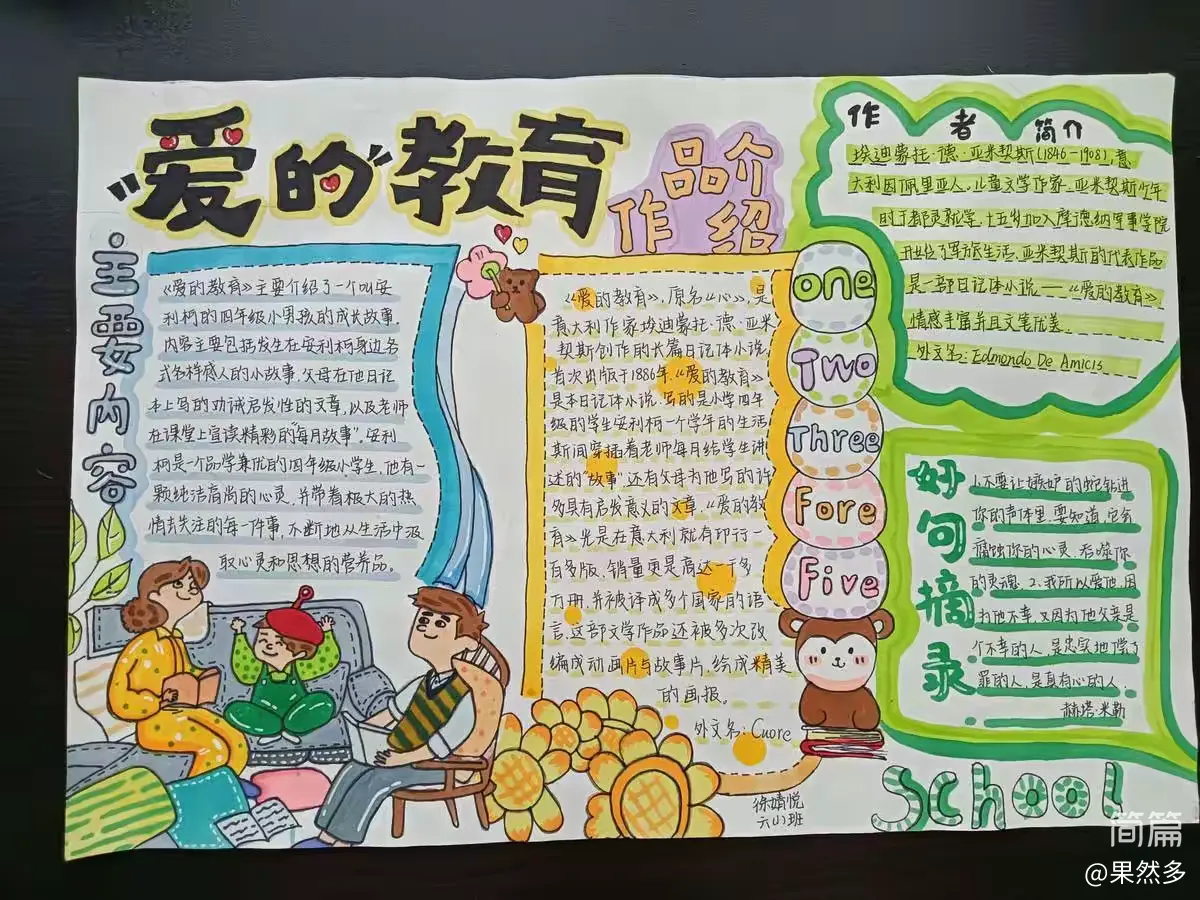 爱的教育
主要内容
《爱的教育》主要介绍了一个叫安
利柯的四年级小男孩的成长故事
内容主要包括发生在安利柯身边各
式各样感人的小故事、父母在他日记
本上写的劝诫启发性的文章，以及老师
在课堂上宣读精彩的“每月故事”。安利
柯是一个品学兼优的四年级小学生，他有一
颗纯洁高尚的心灵，并带着极大的热
情去关注的每一件事，不断地从生活中汲
取心灵和思想的营养品。
作品介绍
《爱的教育》，原名《心》，是
意大利作家埃迪蒙托·德·亚米
契斯创作的长篇日记体小说，
首次出版于1886年，《爱的教育》
是本日记体小说，写的是小学四年
级的学生安利柯一个学年的生活
斯间穿插着老师每月给学生讲
述的“故事”还有父母为他写的许
多具有启发意义的文章，《爱的教
育》光是在意大利就有印行一
百多版，销量更是高达一千多
万册，并被译成多个国家的语
言，这部文学作品还被多次改
编成动画片与故事片，绘成精美
的画报。
外文名：Cuore
徐婧悦
六小班
one
Two
Three
Fore
Five
作者简介
埃迪蒙托·德·亚米契斯（1846-1908），意
大利因佩里亚人，儿童文学作家，亚米契斯少年
时于都灵就学，十五岁加入摩德纳军事学院
开始了军旅生活，亚米契斯的代表作品
是一部日记体小说——《爱的教育》
情感丰富并且文笔优美
外文名：Edmondo De Amicis
妙句摘录
1.不要让嫉妒的蛇钻进
你的声体里，要知道，它会
腐蚀你的心灵，吞噬你
的灵魂。2、我所以爱他，因
为他不幸，又因为他父亲是
个不幸的人，是忠实地偿了
罪的人，是真有心的人
赫塔·米勒
School
简篇
@果然多